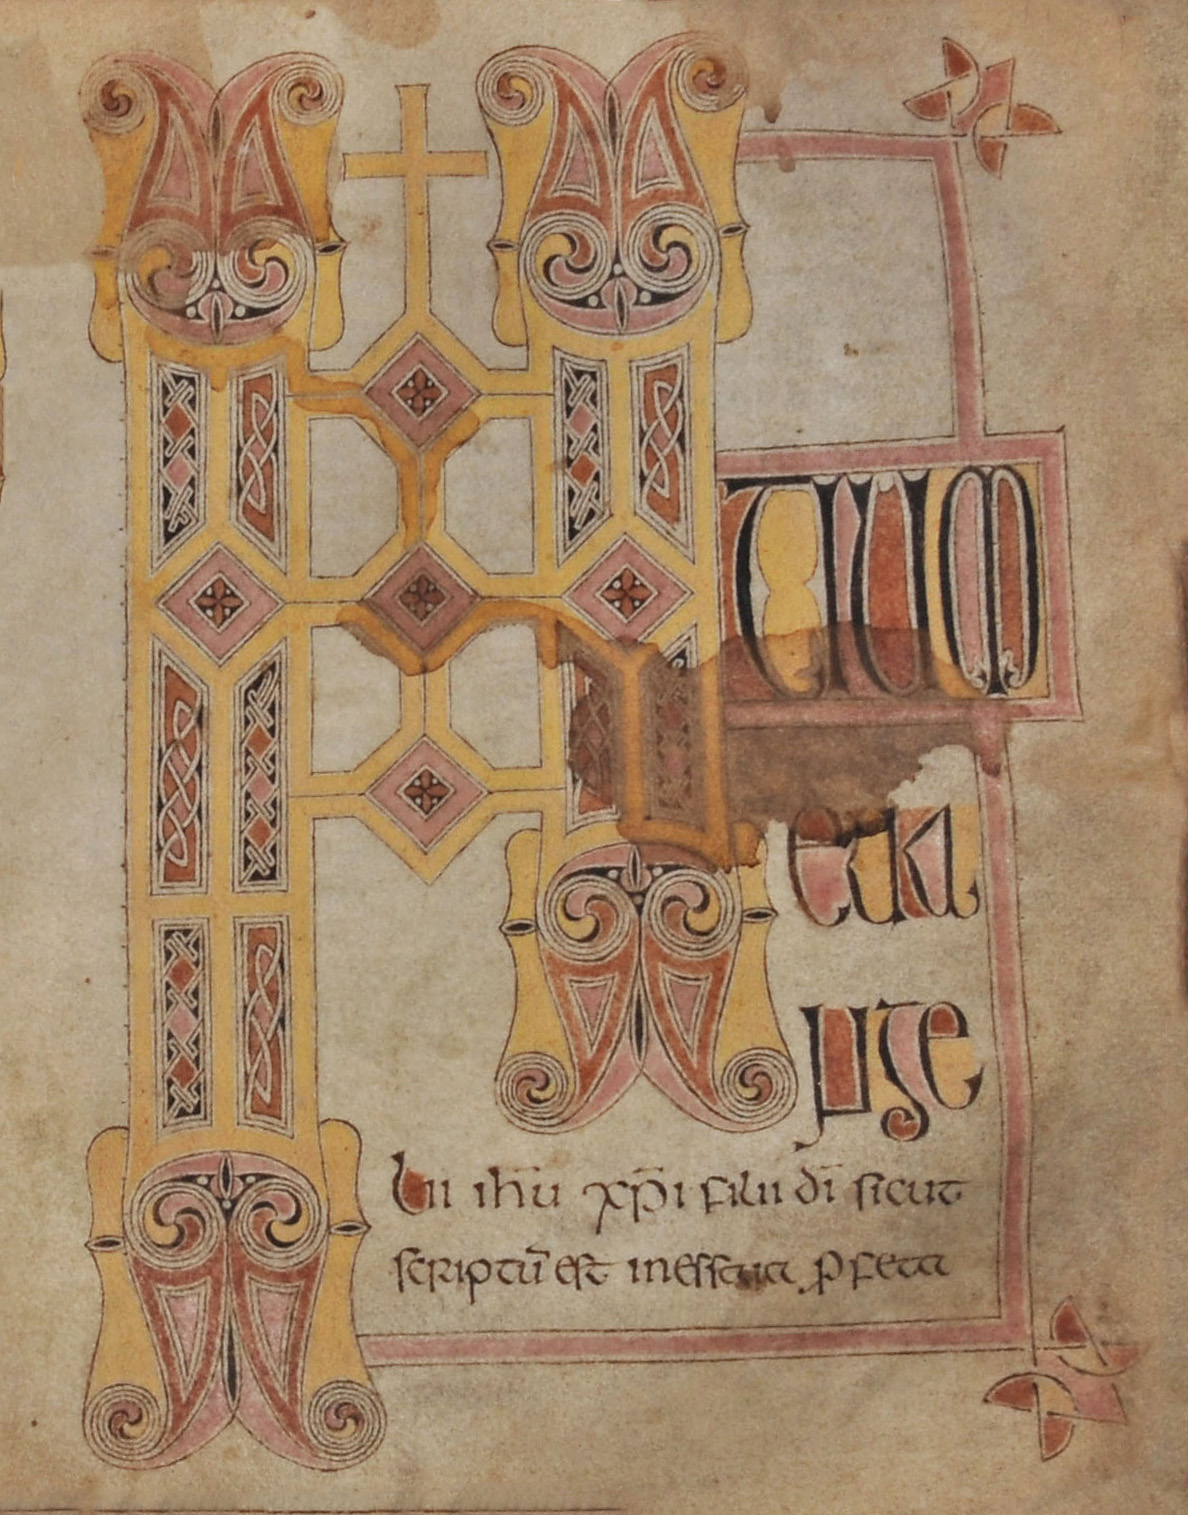 INI
TIUM
eua
nge
lii ihū xp̄i filii dī sicut
scriptū est in essaia ꝓfeta